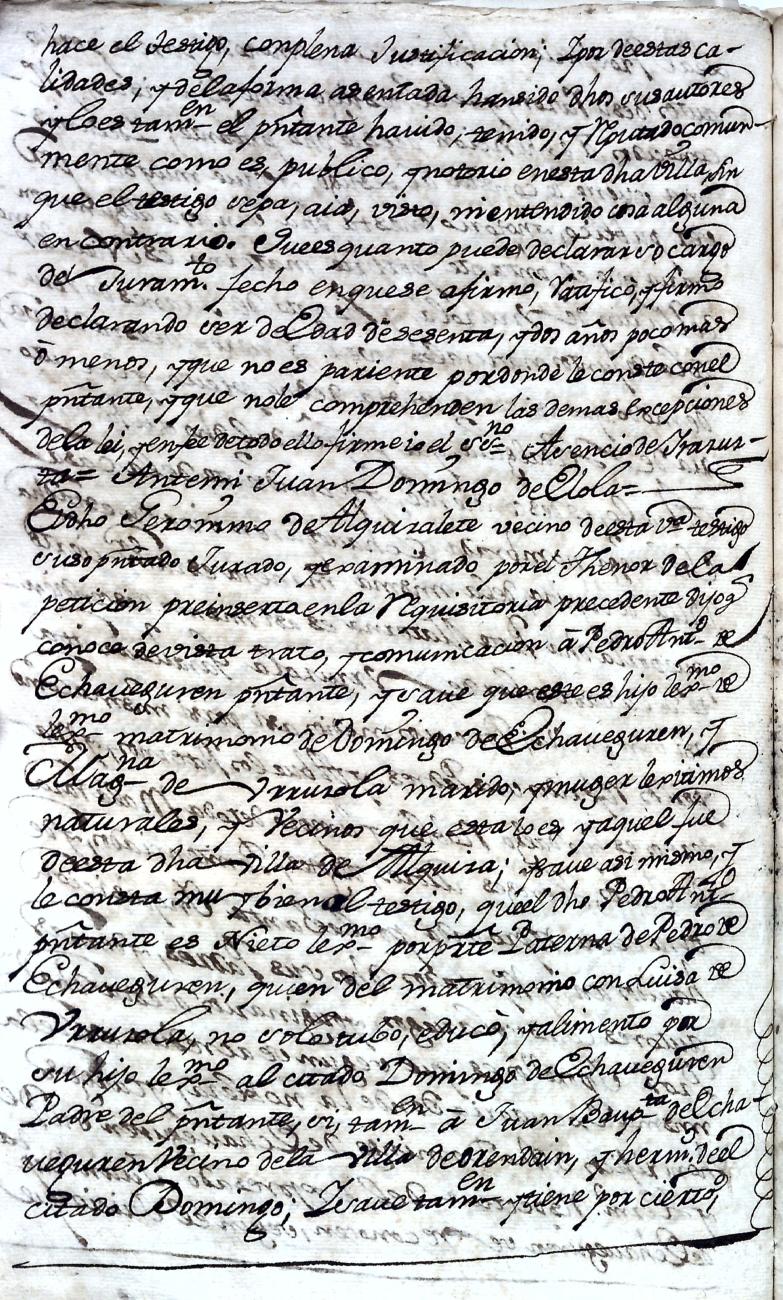 hace el testigo, con plena Justificacion; I por de estas ca-
lidades, y de la forma asentada han sido dhos sus autores
y lo es tamᵉⁿ el pñtante havido, tenido, y Rputado comun-
mente como es, publico, y notorio en esta dha Villa, sin
que el testigo sepa, aia, visto, ni entendido cosa alguna
en contrario. Que es quanto puede declarar so cargo
del Juramᵗᵒ. fecho en que se afirmò, Ratificò, y firmò
declarando ser de Edad de sesenta, y dos años poco mas
ò menos, y que no es pariente por donde le conste con el
pñtante, y que no le comprehenden las demas Excepciones
de la lei, y en fee de todo ello firme io el ssⁿᵒ Asencio de Irazus-
ta= Antemi Juan Domingo de Elola=
El dho Geronimo de Alquiralete vecino de esta vᵃ testigo
suso pñtado Jurado, y examinado por el Thenor de la
peticion preinserta en la Rquisitoria precedente dijo q̃
conoce de vista trato, y comunicacion à Pedro Antᵒ de
Echaveguren pñtante, y save que este es hijo lexᵐᵒ de
lexᵐᵒ matrimonio de Domingo de Echaveguren, y
Magⁿᵃ de Vrrusola marido, y muger lexitimos
naturales, y Vecinos que esta lo es, y aquel fue
de esta dha Villa de Alquiza; save asi mismo, y
le consta mui bien al testigo, que el dho Pedro Antᵒ
pñtante es Nieto lexᵐᵒ por pr̃te Paterna de Pedro de
Echaveguren, quien del matrimonio con Luisa de
Vrrusola, no solo tubo, educò, y alimento por
su hijo lexᵐᵒ al citado Domingo de Echaveguren
Padre del pñtante, si, tamᵉⁿ à Juan Baupᵗᵃ de Echa-
veguren Vecino de la Villa de orendain, y herm.º de el
citado Domingo, I save tamᵉⁿ y tiene por cierto,